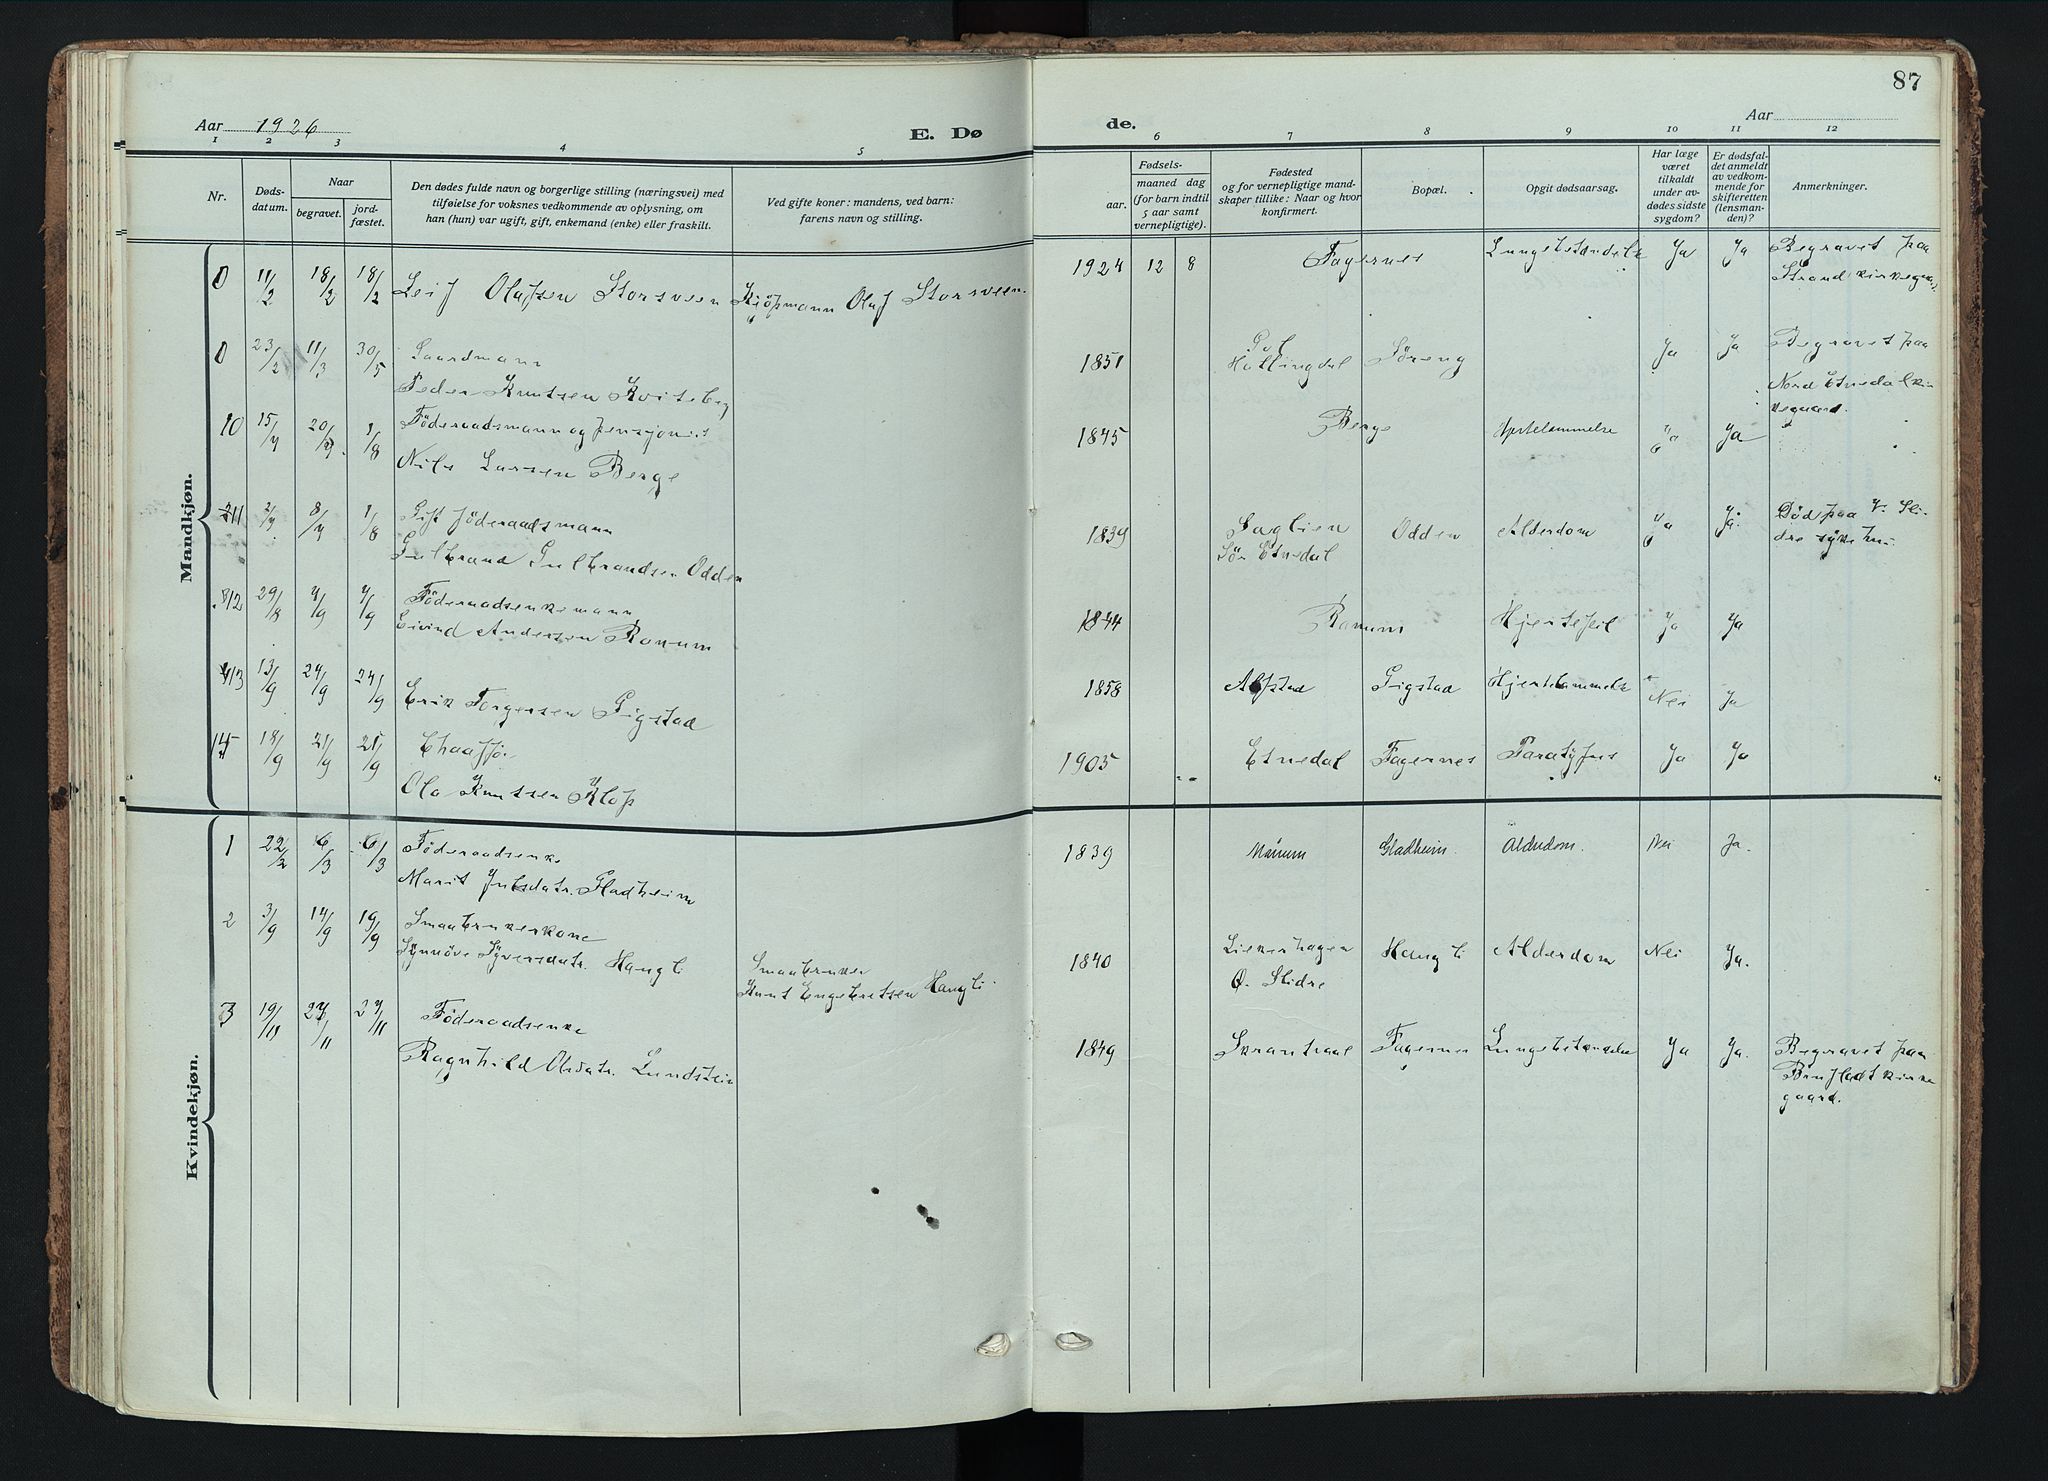 87
Aar 1926
E. Dø
de.
Aar
1 2 3 4 5 6 7 8 9 10 11 12
Nr.
Døds-
datum.
Naar
begravet.
jord-
fæstet.
Den dødes fulde navn og borgerlige stilling (næringsvei) med
tilføielse for voksnes vedkommende av oplysning, om
han (hun) var ugift, gift, enkemand (enke) eller fraskilt.
Ved gifte koner: mandens, ved barn:
farens navn og stilling.
Fødsels-
aar. maaned dag
(for barn indtil
5 aar samt
vernepligtige).
Fødested
og for vernepligtige mand-
skaper tillike: Naar og hvor
konfirmert.
Bopæl.
Opgit dødsaarsag.
Har læge
været
tilkaldt
under av-
dødes sidste
sygdom?
Er dødsfal-
det anmeldt
av vedkom-
mende for
skifteretten
(lensman-
den)?
Anmerkninger.
Mandkjøn.
0 11/2 18/2 18/2 Leif Olafsen Storsveen Kjöpmann Olaf Storsveen. 1924 12 8 Fagernes Lungebetændelse Ja Ja Begravet paa
Strand kirkegaard
0 23/2 11/3 30/5 Gaardmann
Peder Knutsen Kviteberg 1851 Gol
Hallingdal Ja Ja Begravet paa
Nord Etnedal kir-
kegaard.
10 15/7 20/7 1/8 Föderaadsmann og pensjonist
Nils Larsen Berge 1845 Berge Hjertelammelse Ja Ja
11 2/7 8/7 1/8 Gift föderaadsmann
Gulbrand Gulbrandsen Odden 1839 Haglien
Sör Etnedal Odden Alderdom Ja Ja. Död paa V. Sli-
dre sykehus
12 29/8 7/9 7/9 Föderaadsenkemann
Eivind Anderson Ranum 1844 Ranum Hjertefeil Ja Ja
13 13/9 24/9 24/9
Erik Torgersen Gigstad 1858 Alfstad Gigstad Hjertelammelse Nei Ja
18/9 21/9 21/9 Chaafför
Ola Knutsen Klop 1905 Etnedal Fagernes Paratyfus Ja Ja
Kvindekjøn.
1 22/2 6/3 6/3 Föderaadsenke
Marit Julsdatr. Gladheim 1839 Gladheim. Alderdom. Nei Ja.
2 3/9 14/9 19/9 Smaabrukerkone
Synnöve Syversdatr. Haugli Smaabruker
Knut Engebretsen Haugli 1840
Ø. Slidre Haugli Alderdom Nei Ja.
3 19/11 27/11 27/11 Föderaadsenke
Ragnhild Olsdatr. Lundstein 1849 Skrautvaal Fagernes Lungebetændelse Ja Ja. Begravet paa
Bruflat kirke
gaard.